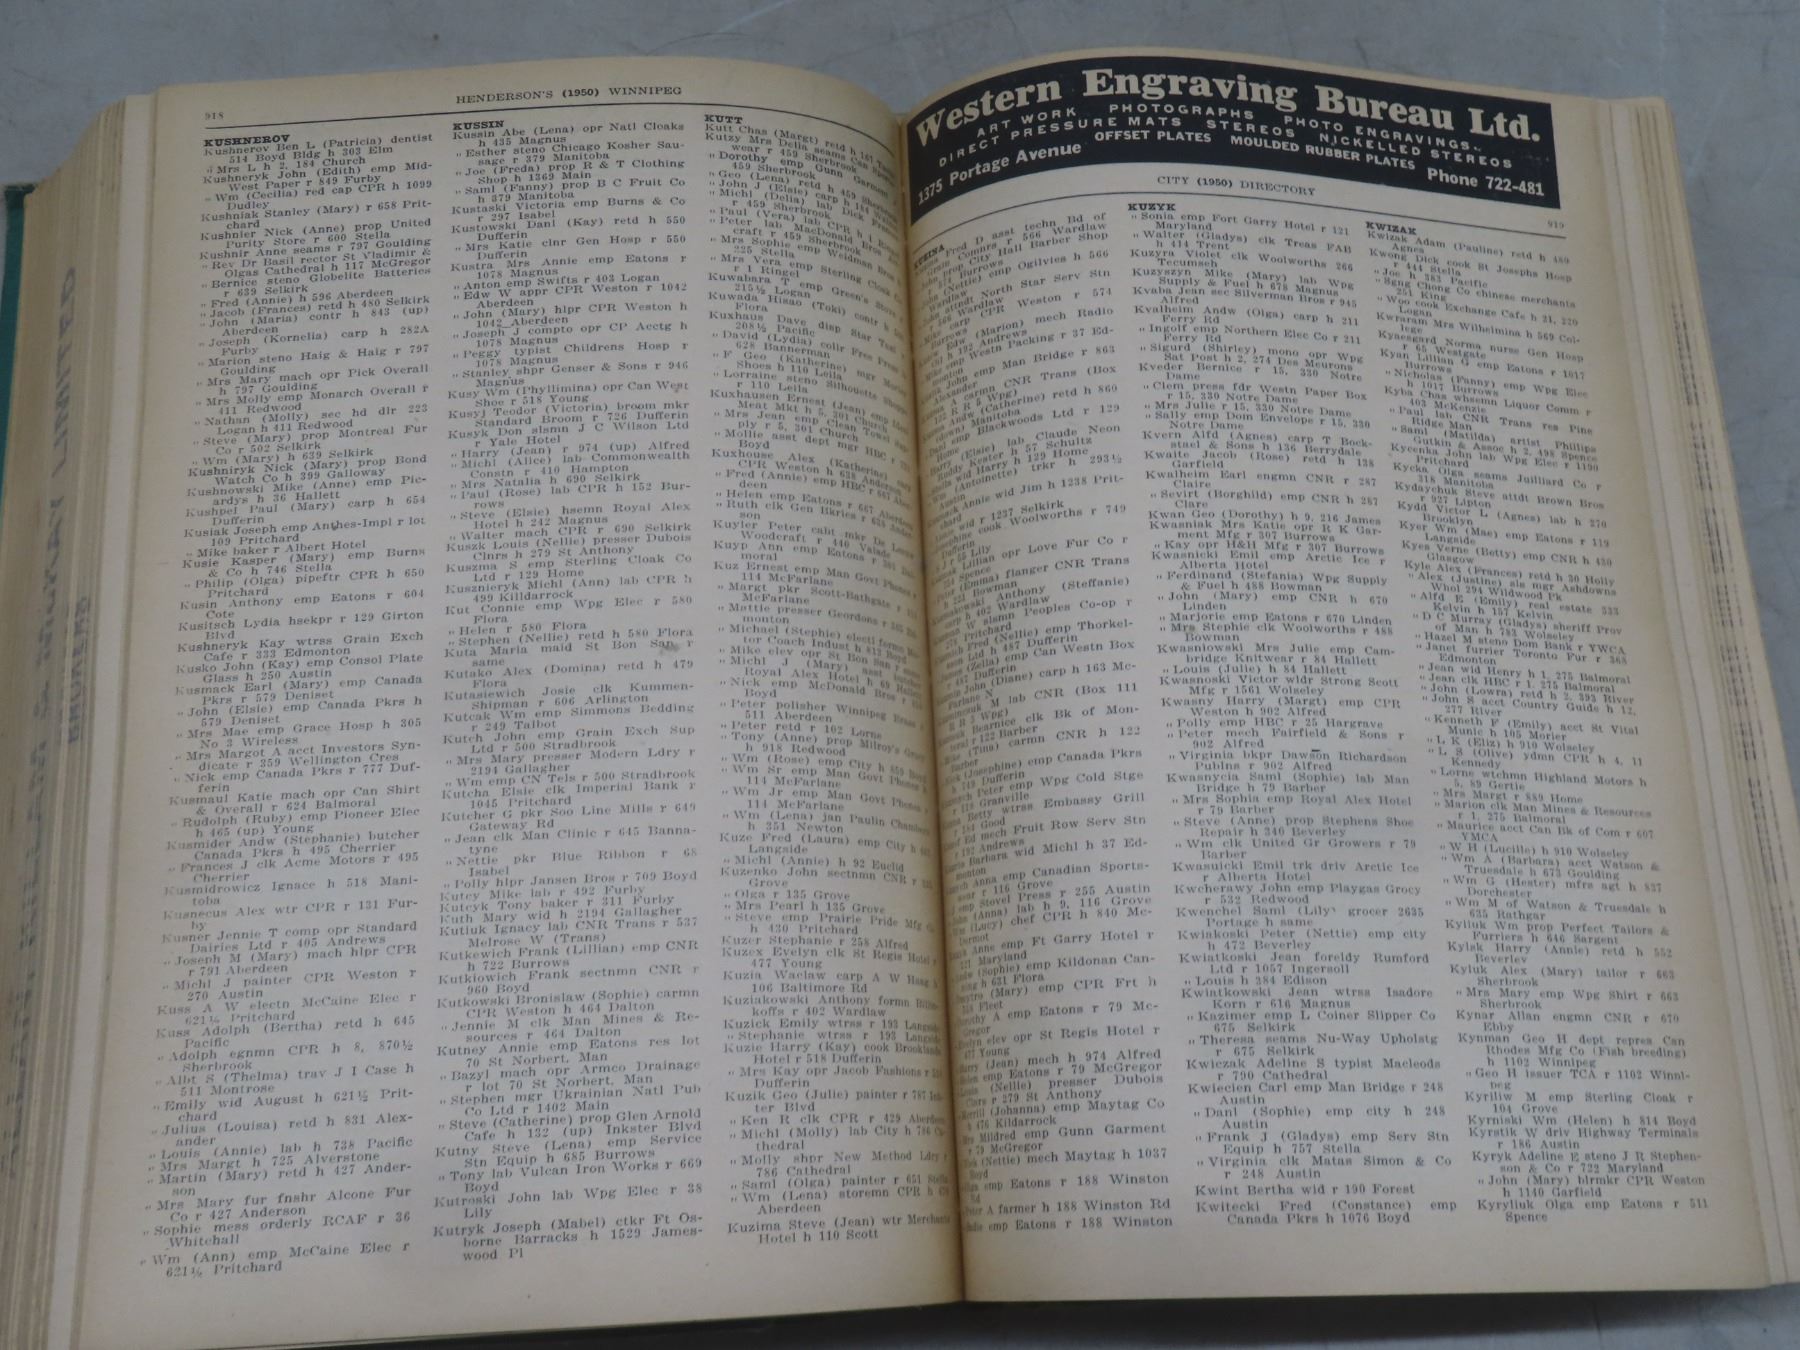 918
HENDERSON'S (1950) WINNIPEG
KUSHNEROV
Kushnerov Ben L (Patricia) dentist
514 Boyd Bldg h 303 Elm
" Mrs L h 2, 184 Church
Kushneryk John (Edith) emp Mid-
West Paper r 849 Furby
" Wm (Cecilia) red cap CPR h 1099
Dudley
Kushniak Stanley (Mary) r 658 Prit-
chard
Kushnier Nick (Anne) prop United
Purity Store r 600 Stella
Kushnir Anne seams r 797 Goulding
" Rev Dr Basil rector St Vladimir &
Olgas Cathedral h 117 McGregor
" Bernice steno Globelite Batteries
r 639 Selkirk
" Fred (Annie) h 596 Aberdeen
" Jacob (Frances) retd h 480 Selkirk
" John (Maria) contr h 843 (up)
Aberdeen
" Joseph (Kornelia) carp h 282A
Furby
" Marion steno Haig & Haig r 797
Goulding
" Mrs Mary mach opr Pick Overall
h 797 Goulding
" Mrs Molly emp Monarch Overall r
411 Redwood
" Nathan (Molly) sec hd dlr 223
Logan h 411 Redwood
" Steve (Mary) prop Montreal Fur
Co r 502 Selkirk
" Wm (Mary) h 639 Selkirk
Kushniryk Nick (Mary) prop Bond
Watch Co h 399 Galloway
Kushnowski Mike (Anne) emp Pic-
ardys h 36 Hallett
Kushpel Paul (Mary) carp h 654
Dufferin
Kusiak Joseph emp Anthes-Impl r lot
109 Pritchard
" Mike baker r Albert Hotel
Kusie Kasper (Mary) emp Burns
& Co h 746 Stella
" Philip (Olga) pipeftr CPR h 650
Pritchard
Kusin Anthony emp Eatons r 604
Cote
Kusitsch Lydia hsekpr r 129 Girton
Blvd
Kushneryk Kay wtrss Grain Exch
Cafe r 333 Edmonton
Kusko John (Kay) emp Consol Plate
Glass h 250 Austin
Kusmack Earl (Mary) emp Canada
Pkrs r 579 Deniset
" John (Elsie) emp Canada Pkrs h
579 Deniset
" Mrs Mae emp Grace Hosp h 305
No 3 Wireless
" Mrs Margot A acct Investors Syn-
dicate r 359 Wellington Cres
" Nick emp Canada Pkrs r 777 Duf-
ferin
Kusmaul Katie mach opr Can Shirt
& Overall r 624 Balmoral
" Rudolph (Ruby) emp Pioneer Elec
h 465 (up) Young
Kusmider Andw (Stephanie) butcher
Canada Pkrs h 495 Cherrier
" Frances J clk Acme Motors r 495
Cherrier
Kusmidrowicz Ignace h 518 Mani-
toba
Kusnecus Alex wtr CPR r 131 Fur-
by
Kusner Jennie T comp opr Standard
Dairies Ltd r 405 Andrews
" Joseph M (Mary) mach hlpr CPR
r 791 Aberdeen
" Michl J painter CPR Weston r
270 Austin
Kuss A W electn McCaine Elec r
621½ Pritchard
Kuss Adolph (Bertha) retd h 645
Pacific
" Adolph egnmn CPR h 8, 870½
Sherbrook
" Albt S (Thelma) trav J I Case h
511 Montrose
" Emily wid August h 621½ Prit-
chard
" Julius (Louisa) retd h 831 Alex-
ander
" Louis (Annie) lab h 738 Pacific
" Mrs Margt h 725 Alverstone
" Martin (Mary) retd h 427 Ander-
son
" Mrs Mary fur fnshr Alcone Fur
Co r 427 Anderson
" Sophie mess orderly RCAF r 36
Whitehall
" Wm (Ann) emp McCaine Elec r
621½ Pritchard
KUSSIN
Kussin Abe (Lena) opr Natl Cloaks
h 435 Magnus
" Esther steno Chicago Kosher Sau-
sage r 379 Manitoba
" Joe (Freda) prop R & T Clothing
Shop h 1369 Main
" Saml (Fanny) prop B C Fruit Co
h 379 Manitoba
Kustaski Victoria emp Burns & Co
r 297 Isabel
Kustowski Danl (Kay) retd h 550
Dufferin
" Mrs Katie clnr Gen Hosp r 550
Dufferin
Kustra Mrs Annie emp Eatons r
1078 Magnus
" Anton emp Swifts r 403 Logan
" Edw W appr CPR Weston r 1042
Aberdeen
" John (Mary) hlpr CPR Weston h
1042 Aberdeen
" Joseph J compto opr CP Acctg h
1078 Magnus
" Peggy typist Childrens Hosp r
1078 Magnus
" Stanley shpr Genser & Sons r 946
Magnus
Kusy Wm (Phyllimina) opr Can West
Shoe r 518 Young
Kusyj Teodor (Victoria) broom mkr
Standard Broom r 726 Dufferin
Kusyk Don slsmn J C Wilson Ltd
r Yale Hotel
" Harry (Jean) r 974 (up) Alfred
" Michl (Alice) lab Commonwealth
Constn r 410 Hampton
" Mrs Natalia h 690 Selkirk
" Paul (Rose) lab CPR h 152 Bur-
rows
" Steve (Elsie) hsemn Royal Alex
Hotel h 242 Magnus
" Walter mach CPR r 690 Selkirk
Kuszk Louis (Nellie) presser Dubois
Clnrs h 279 St Anthony
Kuszma S emp Sterling Cloak Co
Ltd r 129 Home
Kusznieryk Michl (Ann) lab CPR h
499 Killdarrock
Kut Connie emp Wpg Elec r 580
Flora
" Helen r 580 Flora
" Stephen (Nellie) retd h 580 Flora
Kuta Maria maid St Bon San r
same
Kutako Alex (Domina) retd h 479
Flora
Kutasiewich Josie clk Kummen-
Shipman r 606 Arlington
Kutcak Wm emp Simmons Bedding
r 249 Talbot
Kutch John emp Grain Exch Sup
Ltd r 500 Stradbrook
" Mrs Mary presser Modern Ldry r
2194 Gallagher
" Wm emp CN Tels r 500 Stradbrook
Kutcha Elsie clk Imperial Bank r
1045 Pritchard
Kutcher G pkr Soo Line Mills r 649
Gateway Rd
" Jean clk Man Clinic r 645 Banna-
tyne
" Nettie pkr Blue Ribbon r 68
Isabel
" Polly hlpr Jansen Bros r 709 Boyd
Kutey Mike lab r 492 Furby
Kutcyk Tony baker r 311 Furby
Kuth Mary wid h 2194 Gallagher
Kutiuk Ignacy lab CNR Trans r 537
Melrose W (Trans)
Kutkewich Frank (Lillian) emp CNR
h 722 Burrows
Kutkiowich Frank sectnmn CNR r
960 Boyd
Kutkowski Bronislaw (Sophie) carmn
CPR Weston h 464 Dalton
" Jennie M clk Man Mines & Re-
sources r 464 Dalton
Kutney Annie emp Eatons res lot
70 St Norbert, Man
" Bazyl mach opr Armco Drainage
r lot 70 St Norbert, Man
" Stephen mgr Ukrainian Natl Pub
Co Ltd r 1402 Main
" Steve (Catherine) prop Glen Arnold
Cafe h 132 (up) Inkster Blvd
Kutny Steve (Lena) emp Service
Stn Equip h 685 Burrows
" Tony lab Vulcan Iron Works r 669
Boyd
Kutroski John lab Wpg Elec r 38
Lily
Kutryk Joseph (Mabel) ctkr Ft Os-
borne Barracks h 1529 James-
wood Pl
KUTT
Kutt Chas (Margt) retd h
Kutzy Mrs Della seams Can
wear r 459 Sherbrook
" Dorothy emp Gunn Garment
459 Sherbrook
" Geo (Lena) retd h 459 Sherbrook
" John J (Elsie) carp h
" Michl (Delia) lab Dick
r 459 Sherbrook
" Paul (Vera) lab CPR h
" Peter lab MacDonald Bros
craft r 459 Sherbrook
" Mrs Sophie emp Weidman Bros
225 Stella
" Mrs Vera emp Sterling Cloak
r 1 Ringel
Kuwabara T emp Green's
215½ Logan
Kuwada Hisao (Toki) contr h
Flora
Kuxhaus Dave disp Star Taxi
208½ Pacific
" David (Lydia) collr Free Press
628 Bannerman
" F Geo (Katherine) mgr
Shoes h 110 Leila
" Lorraine steno Silhouette
r 110 Leila
Kuxhausen Ernest (Jean) emp
Meat Mkt h 5, 301 Church
" Mrs Jean emp Clean Towel
ply r 5, 301 Church
" Mollie asst dept mgr HBC r
Boyd
Kuxhouse Alex (Katherine)
CPR Weston h 638
" Fred (Annie) emp HBC r 667
deen
" Helen emp Eatons r 667 Aberdeen
" Ruth clk Gen Bkries r 638
son
Kuyler Peter cabt mkr
Woodcraft r 440 Valade
Kuyp Ann emp Eatons r 301
moral
Kuz Ernest emp Man Govt Phones
114 McFarlane
" Margt pkr Scott-Bathgate r
McFarlane
" Mattie presser Geordons r
monton
" Michael (Stephie) electl
tor Coach Indust h 813 Boyd
" Mike elev opr St Bon San r
" Michl J (Mary)
Royal Alex Hotel h 69
" Nick emp McDonald Bros r
Boyd
" Peter polisher Winnipeg
511 Aberdeen
" Peter retd r 102 Lorne
" Tony (Anne) prop Milroy's
h 918 Redwood
" Wm (Rose) emp City h 859
" Wm Sr emp Man Govt Phones
114 McFarlane
" Wm Jr emp Man Govt Phones
114 McFarlane
" Wm (Lena) jan Paulin Chambers
h 351 Newton
Kuze Fred (Laura) emp City h
Langside
" Michl (Annie) h 92 Euclid
Kuzenko John sectnmn CNR r 135
Grove
" Olga r 135 Grove
" Mrs Pearl h 135 Grove
" Steve emp Prairie Pride Mfg
h 430 Pritchard
Kuzer Stephanie r 258 Alfred
Kuzex Evelyn clk St Regis Hotel r
477 Young
Kuzia Waclaw carp A W
106 Baltimore Rd
Kuziakowski Anthony formn
koffs r 402 Wardlaw
Kuzick Emily wtrss r 193 Langside
" Stephanie wtrss r 193 Langside
Kuzie Harry (Kay) cook Brooklands
Hotel r 518 Dufferin
" Mrs Kay opr Jacob Fashions r 518
Dufferin
Kuzik Geo (Julie) painter r 787
ter Blvd
" Ken R clk CPR r 429 Aberdeen
" Michl (Molly) lab City h 786 Ca-
thedral
" Molly shpr New Method Ldry r
786 Cathedral
" Saml (Olga) painter r 651 Stella
" Wm (Lena) storemn CPR h
Aberdeen
Kuzima Steve (Jean) wtr Merchants
Hotel h 110 Scott
Western Engraving Bureau Ltd.
ART WORK PHOTOGRAPHS PHOTO ENGRAVINGS
DIRECT PRESSURE MATS STEREOS NICKELLED STEREOS
OFFSET PLATES MOULDED RUBBER PLATES
1375 Portage Avenue Phone 722-481
CITY (1950) DIRECTORY
919
Fred D asst techn Bd of
Grain Comnrs r 566 Wardlaw
John prop City Hall Barber Shop
h 874 Burrows
John (Nettie) emp Ogilvies h 566
Wardlaw
John attndt North Star Serv Stn
r 566 Wardlaw
Mike carp CPR Weston r 574
Burrows
(Marion) mech Radio
Oil h 192 Andrews
emp Westn Packing r 37 Ed-
monton
John emp Man Bridge r 863
Alexander
A carmn CNR Trans (Box
R R 5 Wpg)
Andw (Catherine) retd h 860
(down) Manitoba
emp Blackwoods Ltd r 129
Home
Harry (Elsie) lab Claude Neon
Ruddy Kester h 57 Schultz
wid Harry h 129 Home
(Antoinette) trkr h 293½
Austin
Annie wid Jim h 1238 Prit-
chard
wid r 1237 Selkirk
Josephine cook Woolworths r 749
Dufferin
S J r 55 Lily
Lillian opr Love Fur Co r
Spence
Peter (Emma) flanger CNR Trans
h 221 Bowman
Anthony (Steffanie)
h 402 Wardlaw
W slsmn Peoples Co-op r
Pritchard
Fred (Nellie) emp Thorkel-
son Ltd h 487 Dufferin
(Zella) emp Can Westn Box
r 487 Dufferin
John (Diane) carp h 163 Mc-
Farlane N
M lab CNR (Box 111
R R 5 Wpg)
Bearnice clk Bk of Mon-
treal r 122 Barber
Mike (Tina) carmn CNR h 122
Barber
Nick (Josephine) emp Canada Pkrs
h 749 Dufferin
Peter emp Wpg Cold Stge
r 118 Granville
Betty wtrss Embassy Grill
r 184 Good
Ed mech Fruit Row Serv Stn
r 192 Andrews
Barbara wid Michl h 37 Ed-
monton
Anna emp Canadian Sports-
wear r 116 Grove
emp Stovel Press r 255 Austin
John (Anna) lab h 9, 116 Grove
Wm (Lucy) chef CPR h 840 Mc-
Dermot
Anne emp Ft Garry Hotel r
221 Maryland
Andw (Sophie) emp Kildonan Can-
ning h 631 Flora
Dmytro (Mary) emp CPR Frt h
Fleet
Dorothy A emp Eatons r 79 Mc-
Gregor
Evelyn elev opr St Regis Hotel r
477 Young
Harry (Jean) mech h 974 Alfred
Helen emp Eatons r 79 McGregor
Louis (Nellie) presser Dubois
Clnrs r 279 St Anthony
Merrill (Johanna) emp Maytag Co
h 476 Kildarrock
Mrs Mildred emp Gunn Garment
r 79 McGregor
Nick (Nettie) mech Maytag h 1037
Boyd
emp Eatons r 188 Winston
Rd
Peter A farmer h 188 Winston Rd
emp Eatons r 188 Winston
KUZYK
" Sonia emp Fort Garry Hotel r 121
Maryland
" Walter (Gladys) clk Treas FAB
h 414 Trent
Kuzyra Violet clk Woolworths 266
Tecumseh
Kuzyszyn Mike (Mary) lab Wpg
Supply & Fuel h 678 Magnus
Kvaba Jean sec Silverman Bros r 945
Alfred
Kvalheim Andw (Olga) carp h 211
Ferry Rd
" Ingolf emp Northern Elec Co r 211
Ferry Rd
" Sigurd (Shirley) mono opr Wpg
Sat Post h 2, 274 Des Meurons
Kveder Bernice r 15, 330 Notre
Dame
" Clem press fdr Westn Paper Box
r 15, 330 Notre Dame
" Mrs Julie r 15, 330 Notre Dame
" Sally emp Dom Envelope r 15, 330
Notre Dame
Kvern Alfd (Agnes) carp T Bock-
stael & Sons h 136 Berrydale
Kwaite Jacob (Rose) retd h 138
Garfield
Kwalheim Earl engmn CNR r 287
Claire
" Sevirt (Borghild) emp CNR h 287
Clare
Kwan Geo (Dorothy) h 9, 216 James
Kwasniak Mrs Katie opr R K Gar-
ment Mfg r 307 Burrows
" Kay opr H&H Mfg r 307 Burrows
Kwasnicki Emil emp Arctic Ice r
Alberta Hotel
" Ferdinand (Stefania) Wpg Supply
& Fuel h 488 Bowman
" John (Mary) emp CNR h 670
Linden
" Marjorie emp Eatons r 670 Linden
" Mrs Stephie clk Woolworths r 488
Bowman
Kwasniowski Mrs Julie emp Cam-
bridge Knitwear r 84 Hallett
" Louis (Julie) h 84 Hallett
Kwasnoski Victor wldr Strong Scott
Mfg r 1561 Wolseley
Kwasny Harry (Margt) emp CPR
Weston h 902 Alfred
" Polly emp HBC r 25 Hargrave
" Peter mech Fairfield & Sons r
902 Alfred
" Virginia bkpr Dawson Richardson
Publns r 902 Alfred
Kwasnycia Saml (Sophie) lab Man
Bridge h 79 Barber
" Mrs Sophia emp Royal Alex Hotel
r 79 Barber
" Steve (Anne) prop Stephens Shoe
Repair h 340 Beverley
" Wm clk United Gr Growers r 79
Barber
Kwasucki Emil trk driv Arctic Ice
r Alberta Hotel
Kwcherawy John emp Playgas Grocy
r 532 Redwood
Kwenchel Saml (Lily) grocer 2635
Portage h same
Kwiakoski Peter (Nettie) emp city
h 472 Beverley
Kwiatkoski Jean foreldy Rumford
Ltd r 1057 Ingersoll
" Louis h 384 Edison
Kwiatkowski Jean wtrss Isadore
Korn r 616 Magnus
" Kazimer emp L Coiner Slipper Co
675 Selkirk
" Theresa seams Nu-Way Upholstg
r 675 Selkirk
Kwiczak Adeline S typist Macleods
r 790 Cathedral
Kwiecien Carl emp Man Bridge r 248
Austin
" Danl (Sophie) emp city h 248
Austin
" Frank J (Gladys) emp Serv Stn
Equip h 757 Stella
" Virginia clk Matas Simon & Co
r 248 Austin
Kwint Bertha wid r 190 Forest
Kwitecki Fred (Constance) emp
Canada Pkrs h 1076 Boyd
KWIZAK
Kwizak Adam (Pauline) retd h 489
Agnes
Kwong Dick cook St Josephs Hosp
r 444 Stella
" Joe h 383 Pacific
" Sgng Chong Co chinese merchants
251 King
" Woo cook Exchange Cafe h 21, 220
Logan
Kwraram Mrs Wilhelmina h 569 Col-
lege
Kyaesgard Norma nurse Gen Hosp
r 65 Westgate
Kyan Lillian G emp Eatons r 1017
Burrows
" Nicholas (Fanny) emp Wpg Elec
h 1017 Burrows
Kyba Chas whsemn Liquor Comm r
403 McKenzie
" Paul lab CNR Trans res Pine
Ridge Man
" Saml (Matilda) artist Phillips
Gutkin & Assoc h 2, 498 Spence
Kycenka John lab Wpg Elec r 1190
Pritchard
Kycka Olga seams Juilliard Co r
318 Manitoba
Kydaychuk Steve attdt Brown Bros
r 927 Lipton
Kydd Victor L (Agnes) lab h 270
Brooklyn
Kyer Wm (Mae) emp Eatons r 119
Langside
Kyes Verne (Betty) emp CNR h 430
Glasgow
Kyle Alex (Frances) retd h 30 Holly
" Alex (Justine) sls mgr Ashdowns
Whol 294 Wildwood Pk
" Alfd E (Emily) real estate 333
Kelvin h 157 Kelvin
" D C Murray (Gladys) sheriff Prov
of Man h 783 Wolseley
" Hazel M steno Dom Bank r YWCA
" Janet furrier Toronto Fur r 368
Edmonton
" Jean wid Henry h 1, 275 Balmoral
" Jean clk HBC r 1, 275 Balmoral
" John (Lowra) retd h 2, 393 River
" John S acct Country Guide h 12,
277 River
" Kenneth F (Emily) acct St Vital
Munic h 105 Morier
" L K (Eliz) h 910 Wolseley
" L S (Olive) ydmn CPR h 4, 11
Kennedy
" Lorne wtchmn Highland Motors h
5, 89 Gertie
" Mrs Margt r 889 Home
" Marion clk Man Mines & Resources
r 1, 275 Balmoral
" Maurice acct Can Bk of Com r 607
YMCA
" W H (Lucille) h 910 Wolseley
" Wm A (Barbara) acct Watson &
Truesdale h 673 Goulding
" Wm G (Hester) mfrs agt h 837
Dorchester
" Wm M of Watson & Truesdale h
635 Rathgar
Kylluk Wm prop Perfect Tailors &
Furriers h 646 Sargent
Kylsk Harry (Annie) retd h 552
Beverley
Kyluk Alex (Mary) tailor r 663
Sherbrook
" Mrs Mary emp Wpg Shirt r 663
Sherbrook
Kynar Allan engmn CNR r 670
Ebby
Kynman Geo H dept repres Can
Rhodes Mfg Co (Fish breeding)
h 1102 Winnipeg
" Geo H issuer TCA r 1102 Winni-
peg
Kyriliw M emp Sterling Cloak r
104 Grove
Kyrniski Wm (Helen) h 814 Boyd
Kyrstik W driv Highway Terminals
r 186 Austin
Kyryk Adeline E steno J R Stephen-
son & Co r 722 Maryland
" John (Mary) blrmkr CPR Weston
h 1140 Garfield
Kyryliuk Olga emp Eatons r 511
Spence